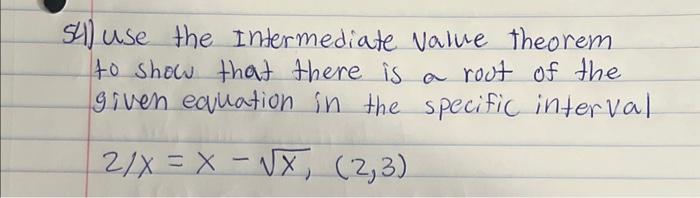 54) use the Intermediate Value theorem
to show that there is a root of the
given equation in the specific interval
2/x = x - √x, (2,3)